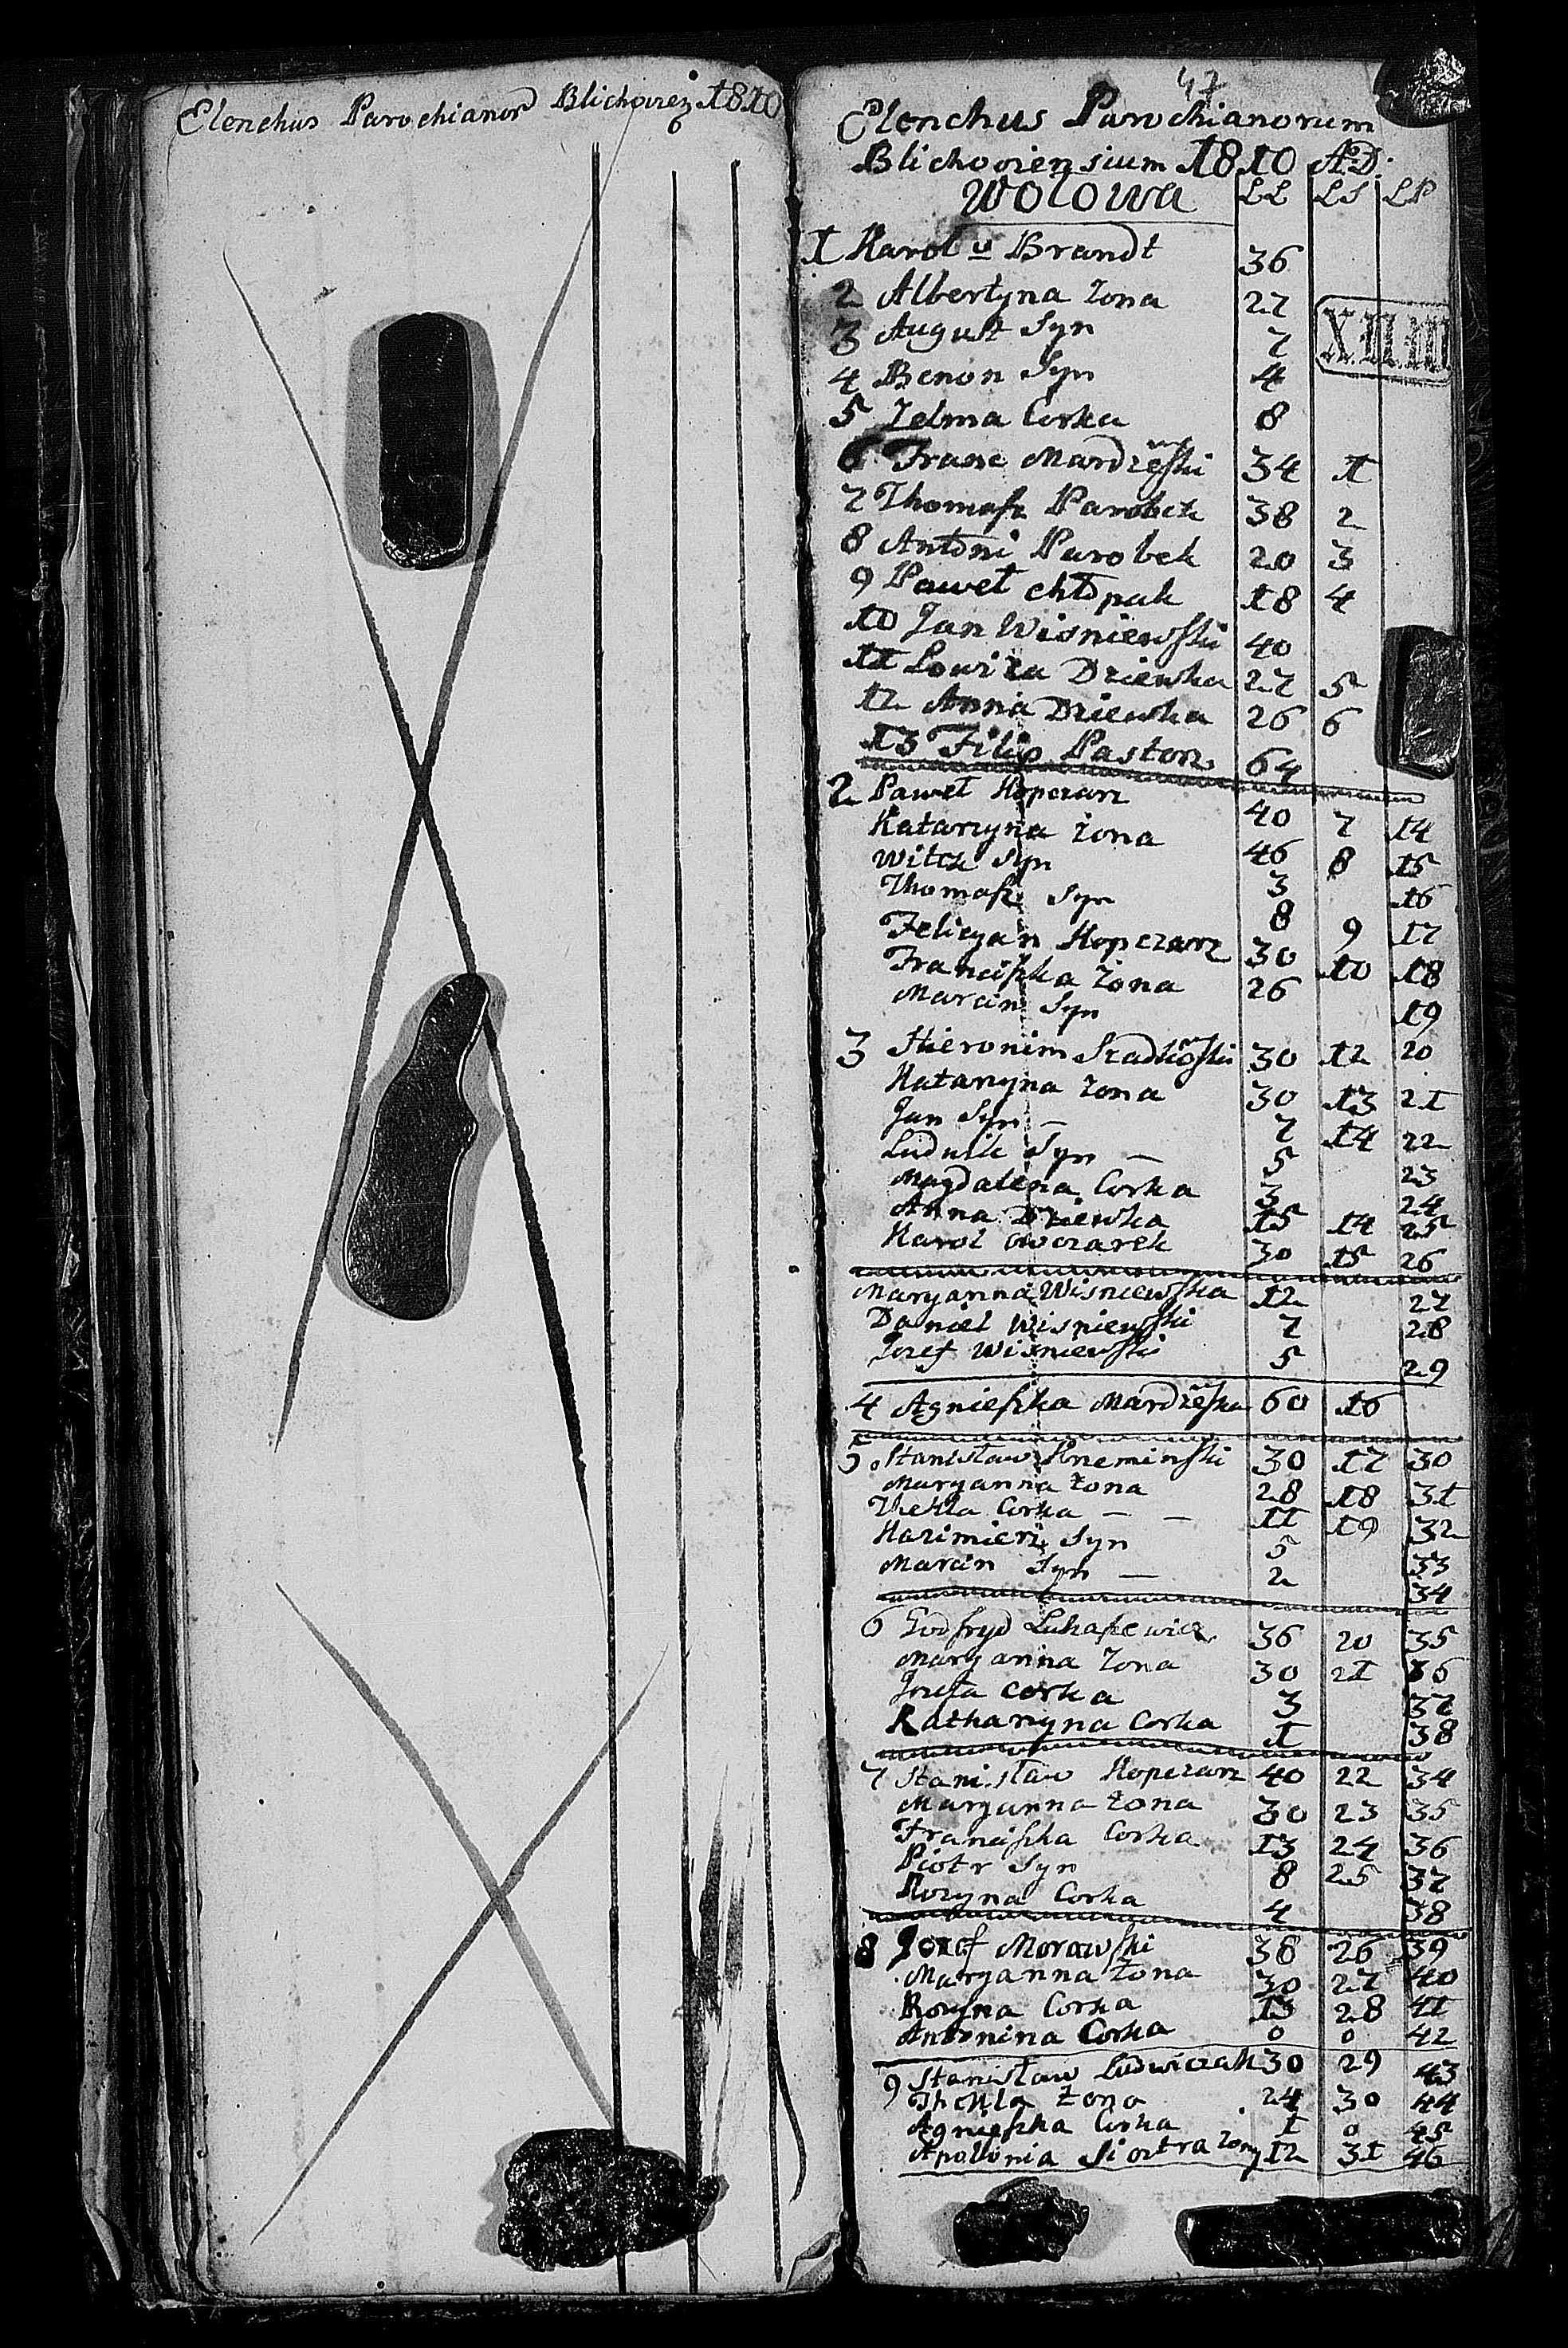 Elenchus Parochianor Blichoviez 1810
47
Elenchus Parochianorum
Blichoviensium 1810 AD.
Wolowa LL LS LP
1 Karol v Brandt 36
2 Albertyna zona 27
3 August Syn 7
4 Benon Syn 4
5 Zelma Corka 8
6 Franc Mardzeski 34 1
7 Thomasz Parobek 38 2
8 Antoni Parobek 20 3
9 Paweł chłopak 18 4
10 Jan Wisniewski 40
11 Lowiza Dziewka 27 5
12 Anna Dziewka 26 6
13 Filip Pastorz 64
2 Paweł Kopczarz 40 7 14
Katarzyna zona 46 8 15
Witek Syn 3 16
Thomasz Syn 8 9 17
Felicyan Kopczarz 30 10 18
Franciszka zona 26
Marcin Syn 19
3 Hieronim 30 12 20
Katarzyna zona 30 13 21
Jan Syn – 7 14 22
Ludwik Syn – 5 23
Magdalena Corka 3 24
Anna Dziewka 15 14 25
Karol Owczarek 30 15 26
Maryanna Wisniewska 12 27
Daniel Wisniewski 7 28
Jozef Wisniewski 5 29
4 Agnieszka Mardzeska 60 16
5 Stanisław Krzeminski 30 17 30
Maryanna zona 28 18 31
Thekla Corka – – 11 19 32
Kazimierz Syn 5 33
Marcin Syn – 2 34
6 Godfryd Lukaszewicz 36 20 35
Maryanna zona 30 21 36
Jozefa corka 3 37
Katharzyna Corka 1 38
7 Stanisław Kopczarz 40 22 34
Maryanna zona 30 23 35
Franciszka Corka 13 24 36
Piotr Syn 8 25 37
Rozyna Corka 4 38
8 Jozef Morawski 38 26 39
Maryanna zona 30 27 40
Rozyna Corka 13 28 41
Antonina Corka 0 0 42
9 Stanisław Ludwiczak 30 29 43
Thekla zona 24 30 44
Agnieszka Corka 1 0 45
Apolonia Siostra zony 12 31 46